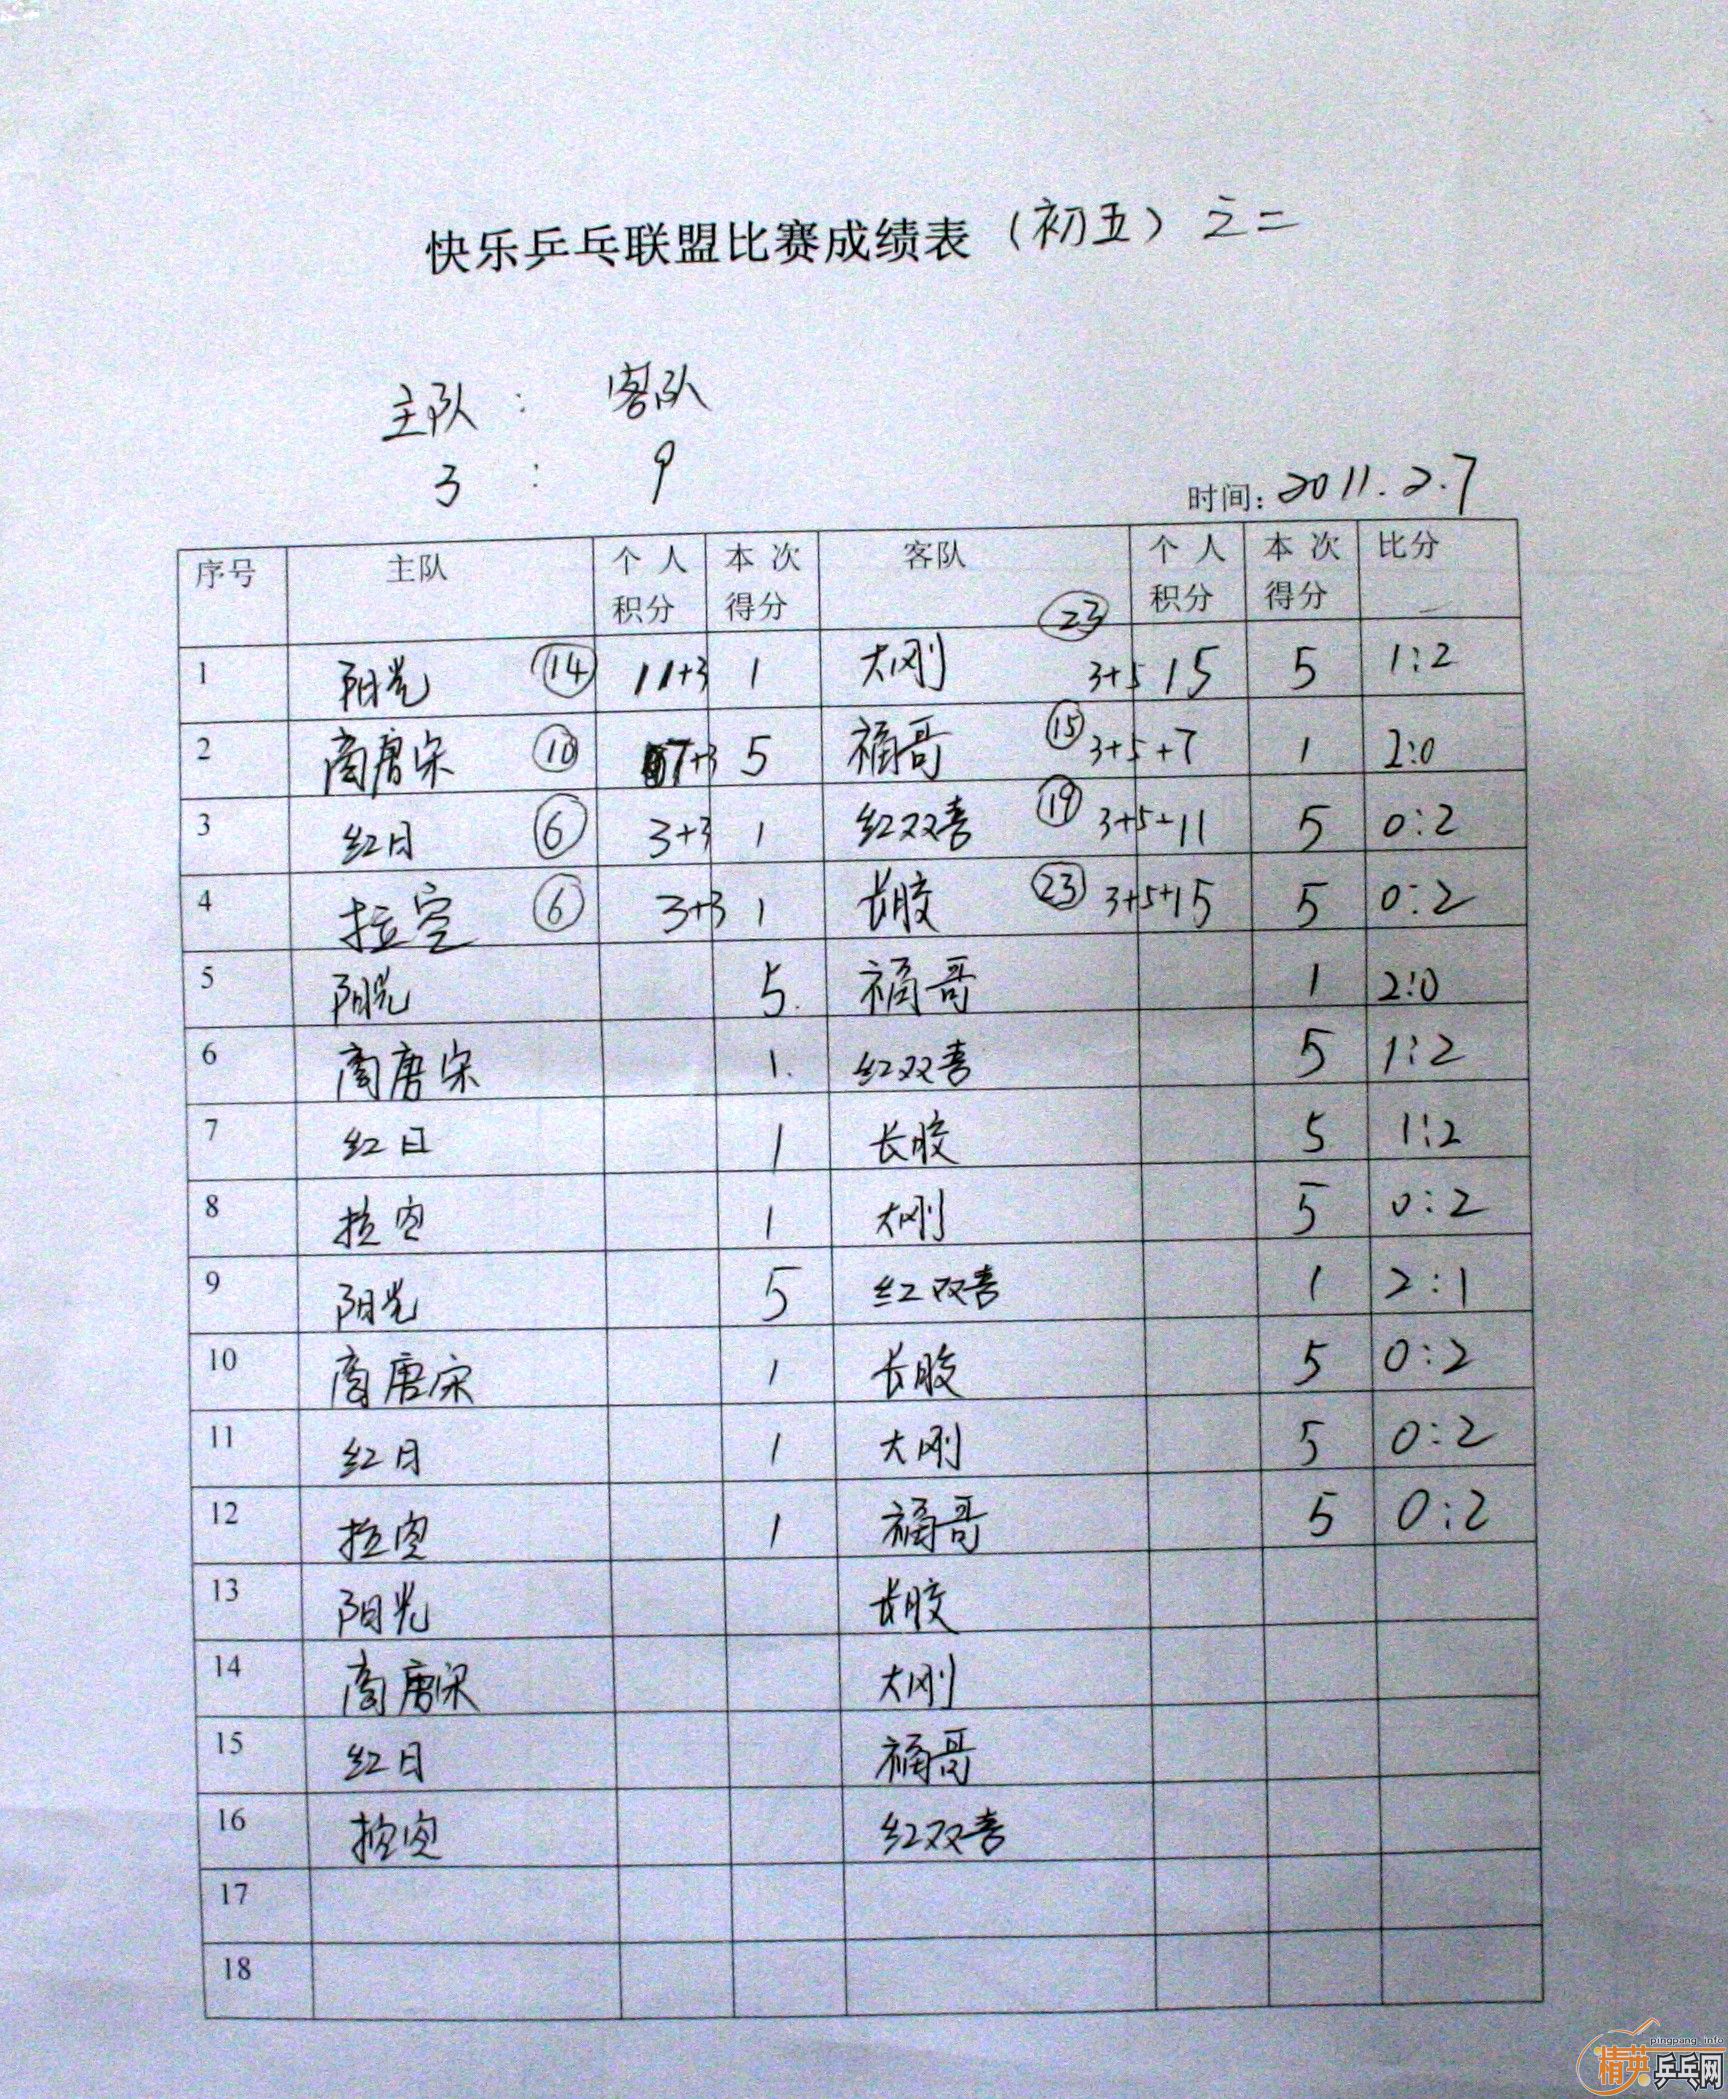 快乐乒乓联盟比赛成绩表（初五）之二
主队 : 客队
3 : 9
时间: 2011.2.7
序号 主队 个人积分 本次得分 客队 个人积分 本次得分 比分
1 阳光 ⑭ 11+3 1 大刚 ㉓ 3+5 15 5 1:2
2 商唐宋 ⑩ 7+3 5 福哥 ⑮ 3+5+7 1 2:0
3 红日 ⑥ 3+3 1 红双喜 ⑲ 3+5+11 5 0:2
4 拉空 ⑥ 3+3 1 长胶 ㉓ 3+5+15 5 0:2
5 阳光 5. 福哥 1 2:0
6 商唐宋 1. 红双喜 5 1:2
7 红日 1 长胶 5 1:2
8 拉空 1 大刚 5 0:2
9 阳光 5 红双喜 1 2:1
10 商唐宋 1 长胶 5 0:2
11 红日 1 大刚 5 0:2
12 拉空 1 福哥 5 0:2
13 阳光 长胶
14 商唐宋 大刚
15 红日 福哥
16 拉空 红双喜
17
18
pingpang.info
精英乒乓网